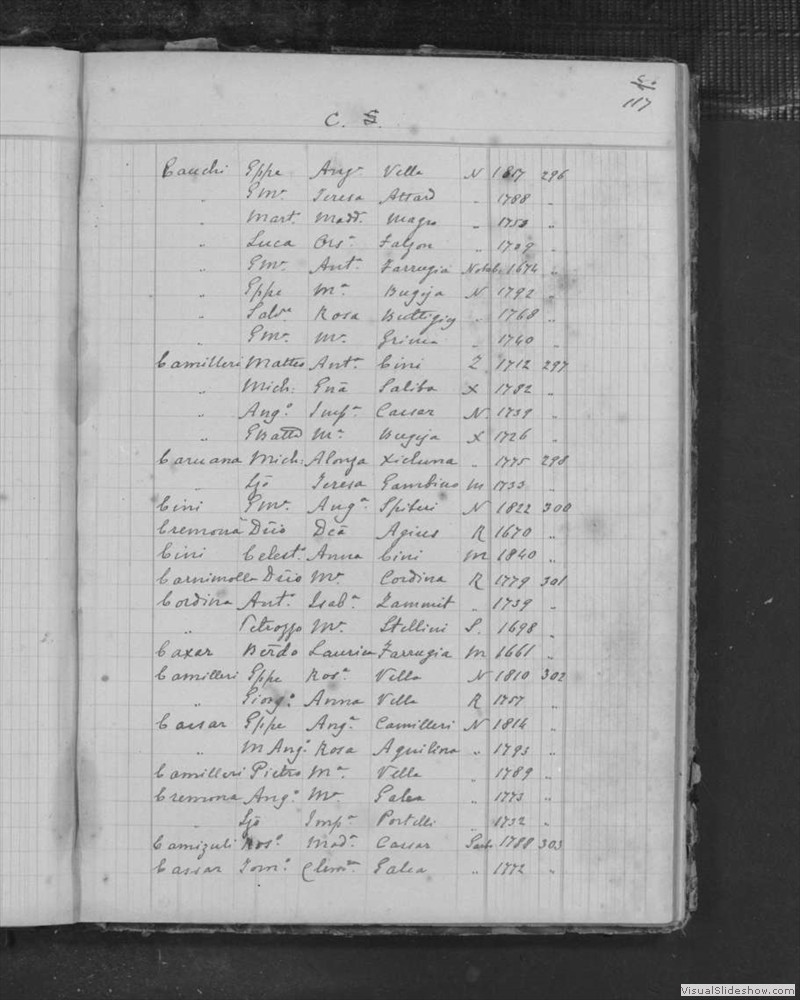 117
C.
Cauchi Gppe Angᵃ Vella N 1817 296
" Gmᵉ Teresa Attard " 1788 "
" Mart. Madd. Magro " 1750 "
" Luca Orsᵃ Falzon " 1709 "
" Gmᵉ Antᵃ Farrugia Notab. 1674 "
" Gppe Mᵃ Bugeja N 1792 "
" Salvᵉ Rosa Buttigieg " 1768 "
" Gmᵉ Mᵃ Grima " 1740 "
Camilleri Matteo Antᵃ Cini Z 1712 297
" Mich: Gnā Saliba X 1782 "
" Angᵒ Impᵃ Cassar N 1739 "
" GBatta Mᵃ Bugeja X 1726 "
Caruana Mich: Alonza Xicluna " 1775 298
" Ljō Teresa Gambino M 1733 "
Cini Gmᵉ Angᵃ Spiteri N 1822 300
Cremona Dēio Deā Agius R 1670 "
Cini Celestᵒ Anna Cini M 1840 "
Dēio Mᵃ Cordina R 1779 301
Cordina Antᵒ Isabᵃ Zammit " 1739 "
" Petruzzo Mᵃ Stellini S. 1698 "
Caxar Berdo Laurica Farrugia M 1661 "
Camilleri Gppe Rosᵃ Vella N 1810 302
" Giorgᵒ Anna Vella R 1757 "
Cassar Gppe Angᵃ Camilleri N 1814 "
" M Angᵒ Rosa Aquilina " 1793 "
Camilleri Pietro Mᵃ Vella " 1789 "
Cremona Angᵒ Mᵃ Galea " 1773 "
" Ljō Impᵃ Portelli " 1732 "
Rosᵒ Madᵃ Cassar 1788 303
Cassar Tomᵒ Clemᵃ Galea " 1772 "
VisualSlideshow.com